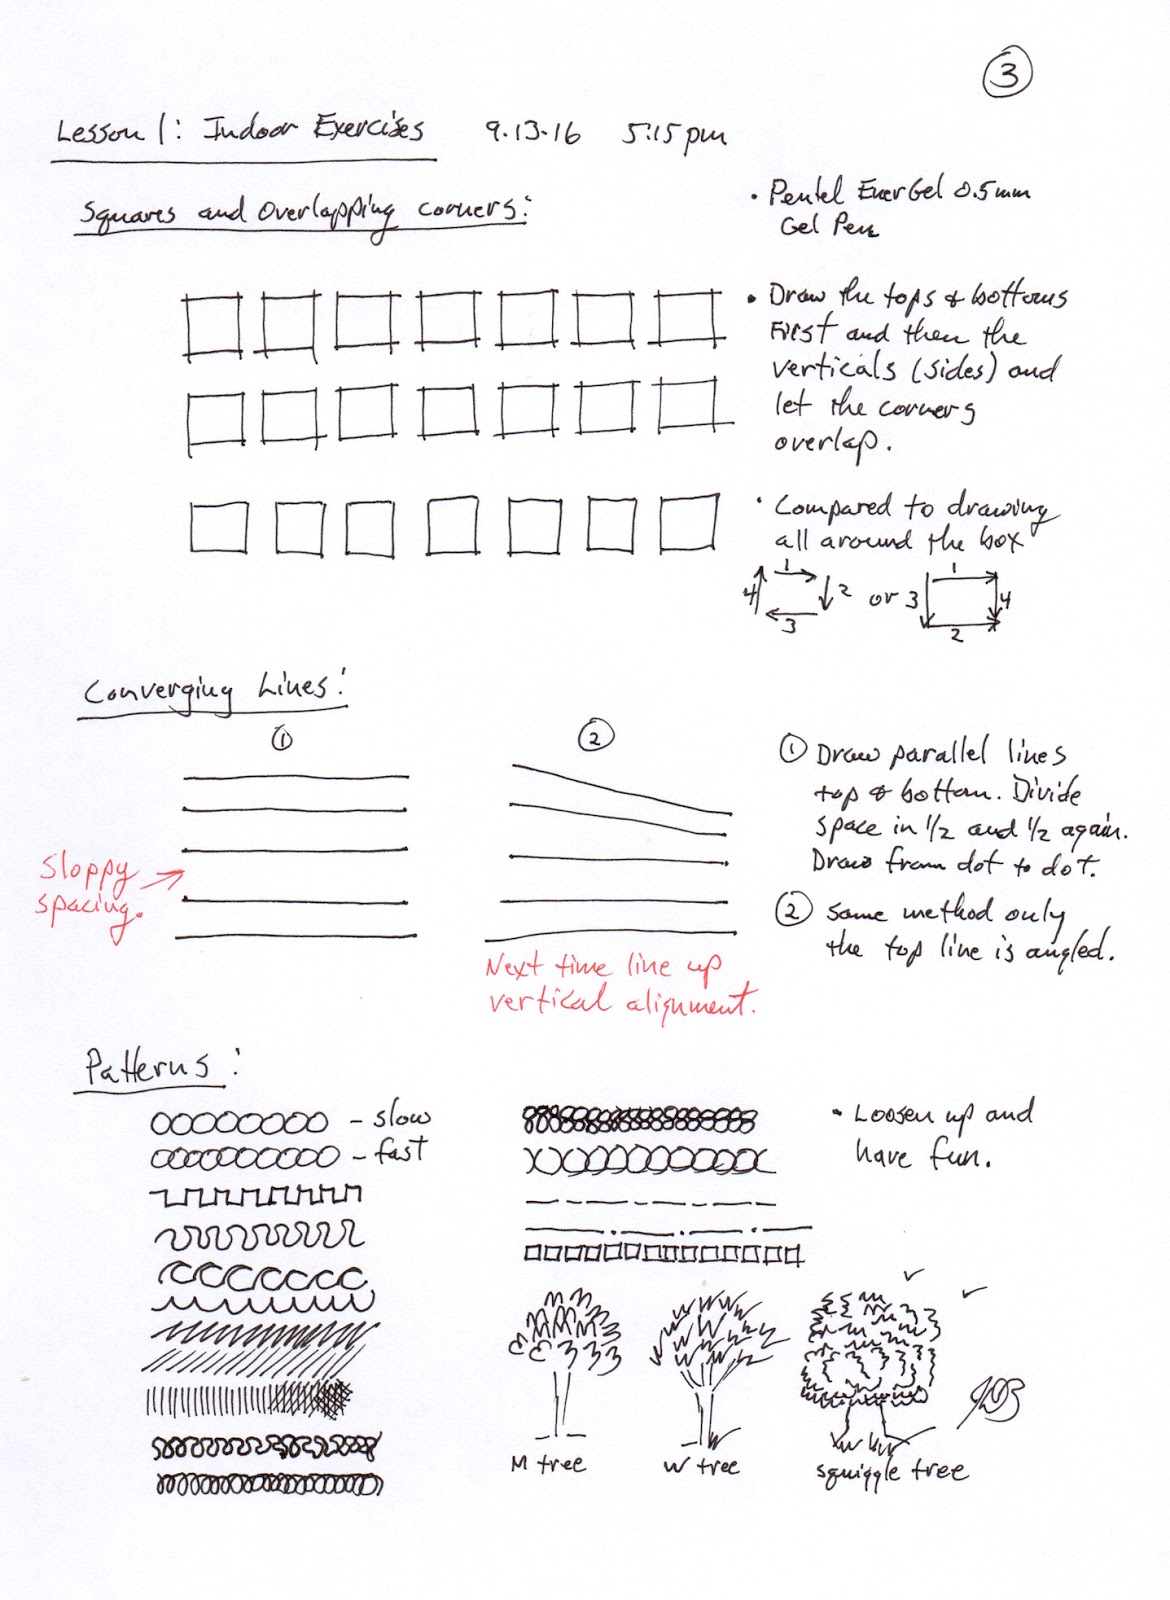 3
Lesson 1: Indoor Exercises 9.13.16 5:15pm
Squares and Overlapping Corners:
• Pentel EnerGel 0.5mm
Gel Pen
• Draw the tops & bottoms
First and then the
verticals (sides) and
let the corners
overlap.
• Compared to drawing
all around the box
1
4 2 or 3 1 4
3 2
Converging Lines:
1 2
Sloppy
spacing.
Next time line up
vertical alignment.
1 Draw parallel lines
top & bottom. Divide
space in 1/2 and 1/2 again.
Draw from dot to dot.
2 Same method only
the top line is angled.
Patterns:
- slow
- fast
• Loosen up and
have fun.
M tree W tree squiggle tree
JDB